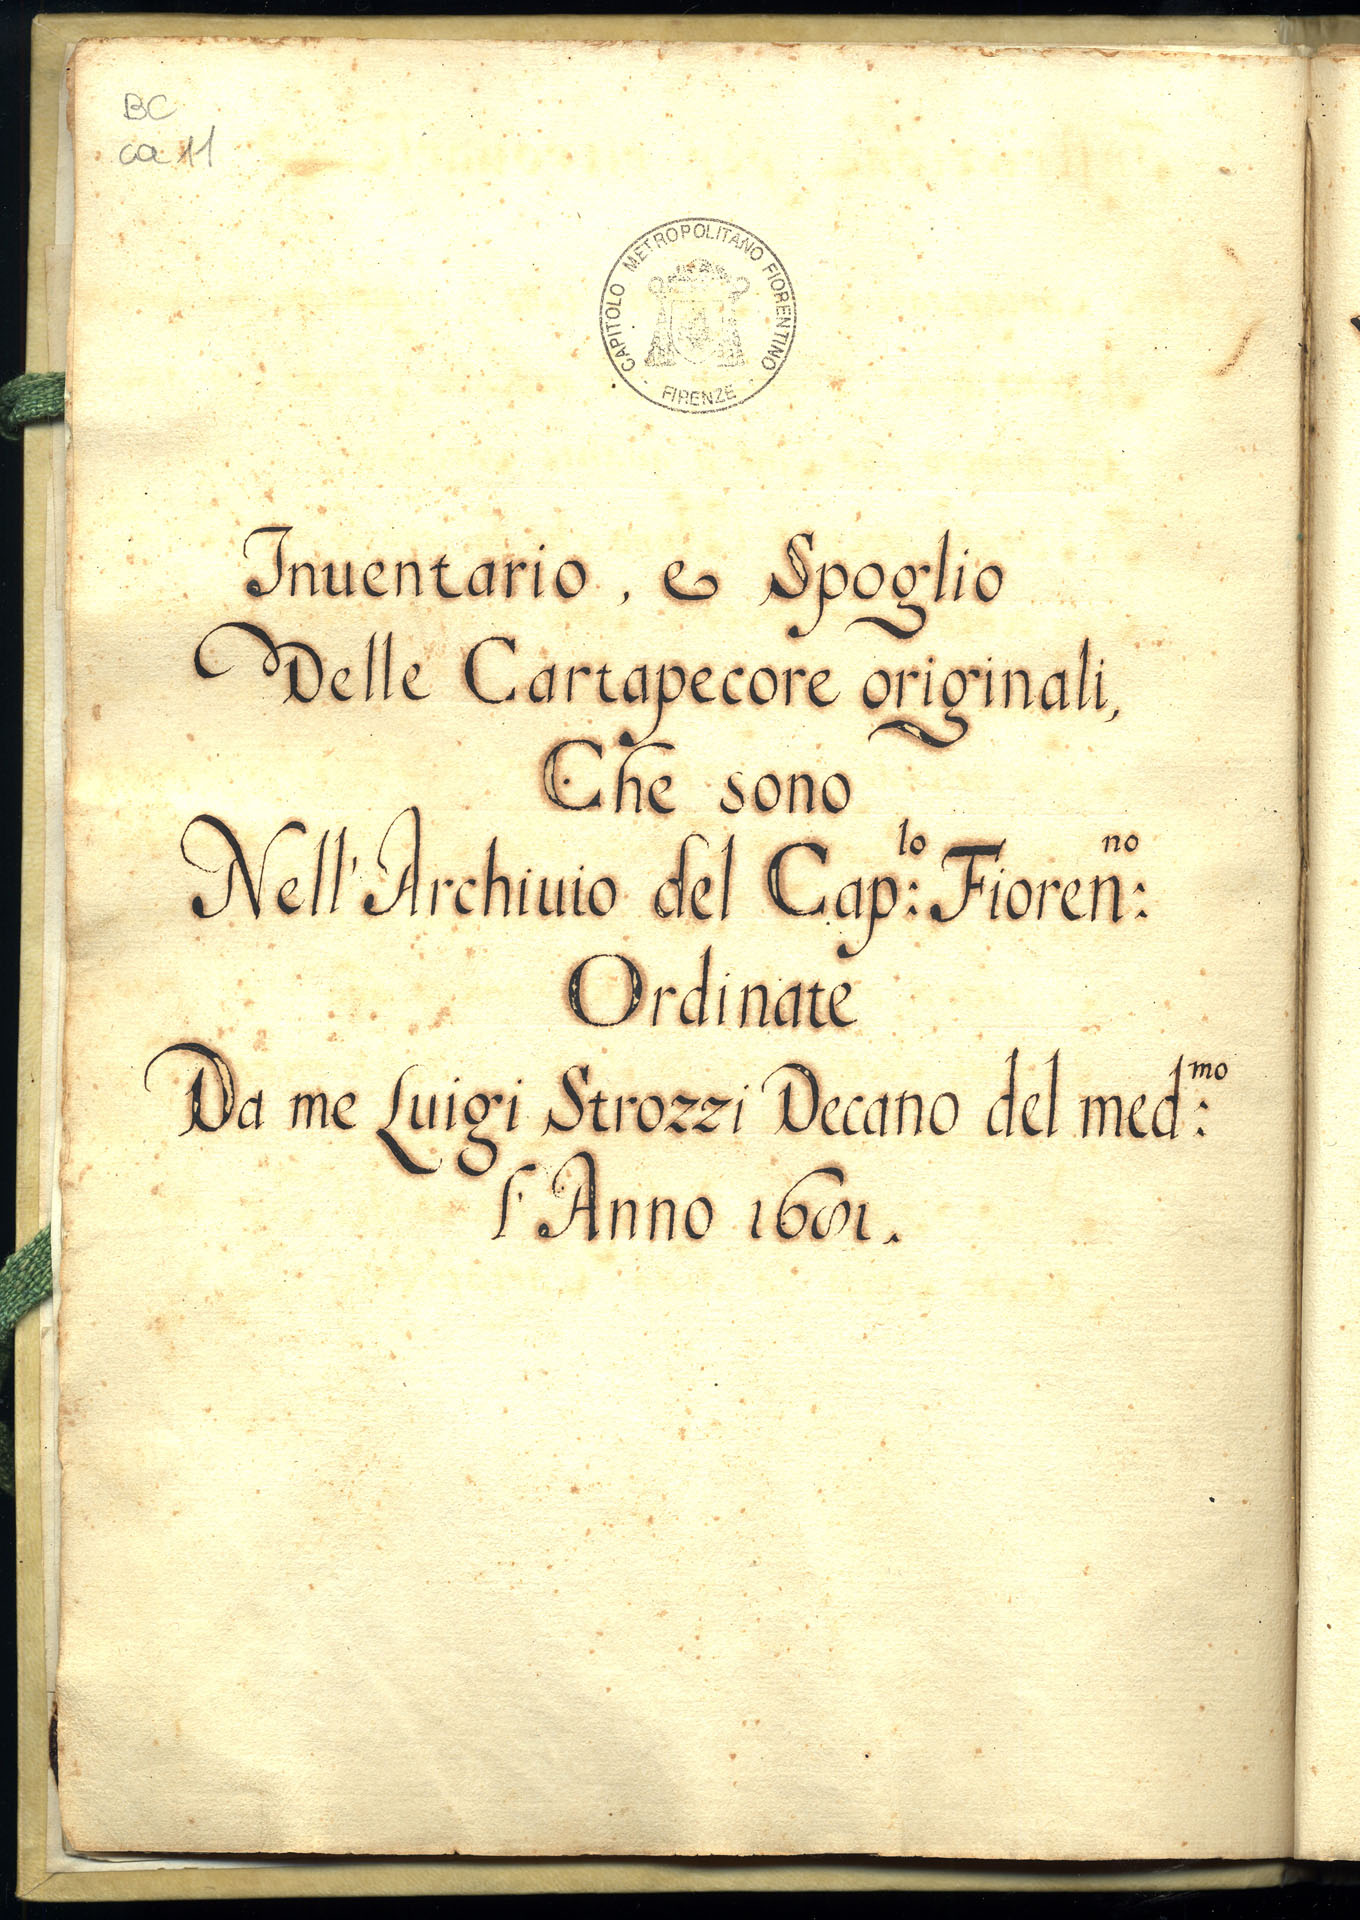 BC
ca 11
CAPITOLO METROPOLITANO FIORENTINO
FIRENZE
Inuentario, e Spoglio
Delle Cartapecore originali,
Che sono
Nell'Archiuio del Cap:lo Fioren:no
Ordinate
Da me Luigi Strozzi Decano del med:mo
l'Anno 1681.